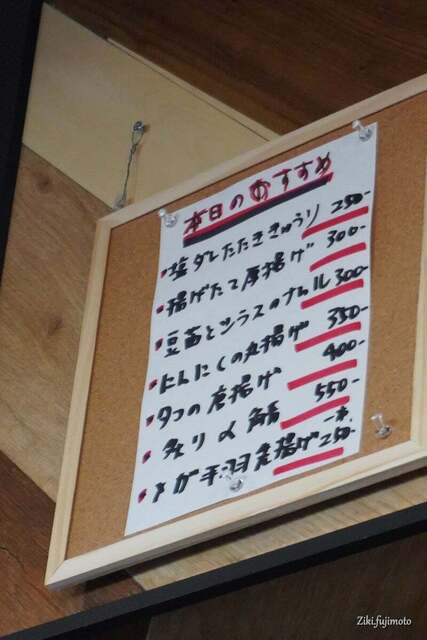 本日のおすすめ
塩ダレたたききゅうり 250-
揚げたて厚揚げ 300-
豆苗とシラスのナムル 300-
にんにくの丸揚げ 350-
タコの唐揚げ 400-
炙り〆鯖 550-
手羽先揚げ 一本 250-
Ziki.fujimoto